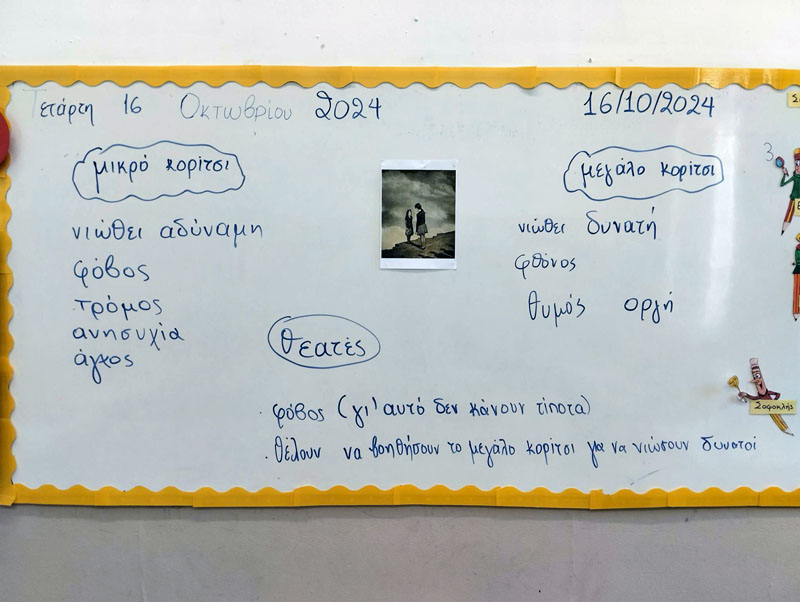 Τετάρτη 16 Οκτωβρίου 2024
16/10/2024
μικρό κορίτσι
νιώθει αδύναμη
φόβος
τρόμος
ανησυχία
άγχος
μεγάλο κορίτσι
νιώθει δυνατή
φθόνος
θυμός οργή
θεατές
· φόβος (γι' αυτό δεν κάνουν τίποτα)
· θέλουν να βοηθήσουν το μεγάλο κορίτσι για να νιώσουν δυνατοί
3
Σοφοκλής